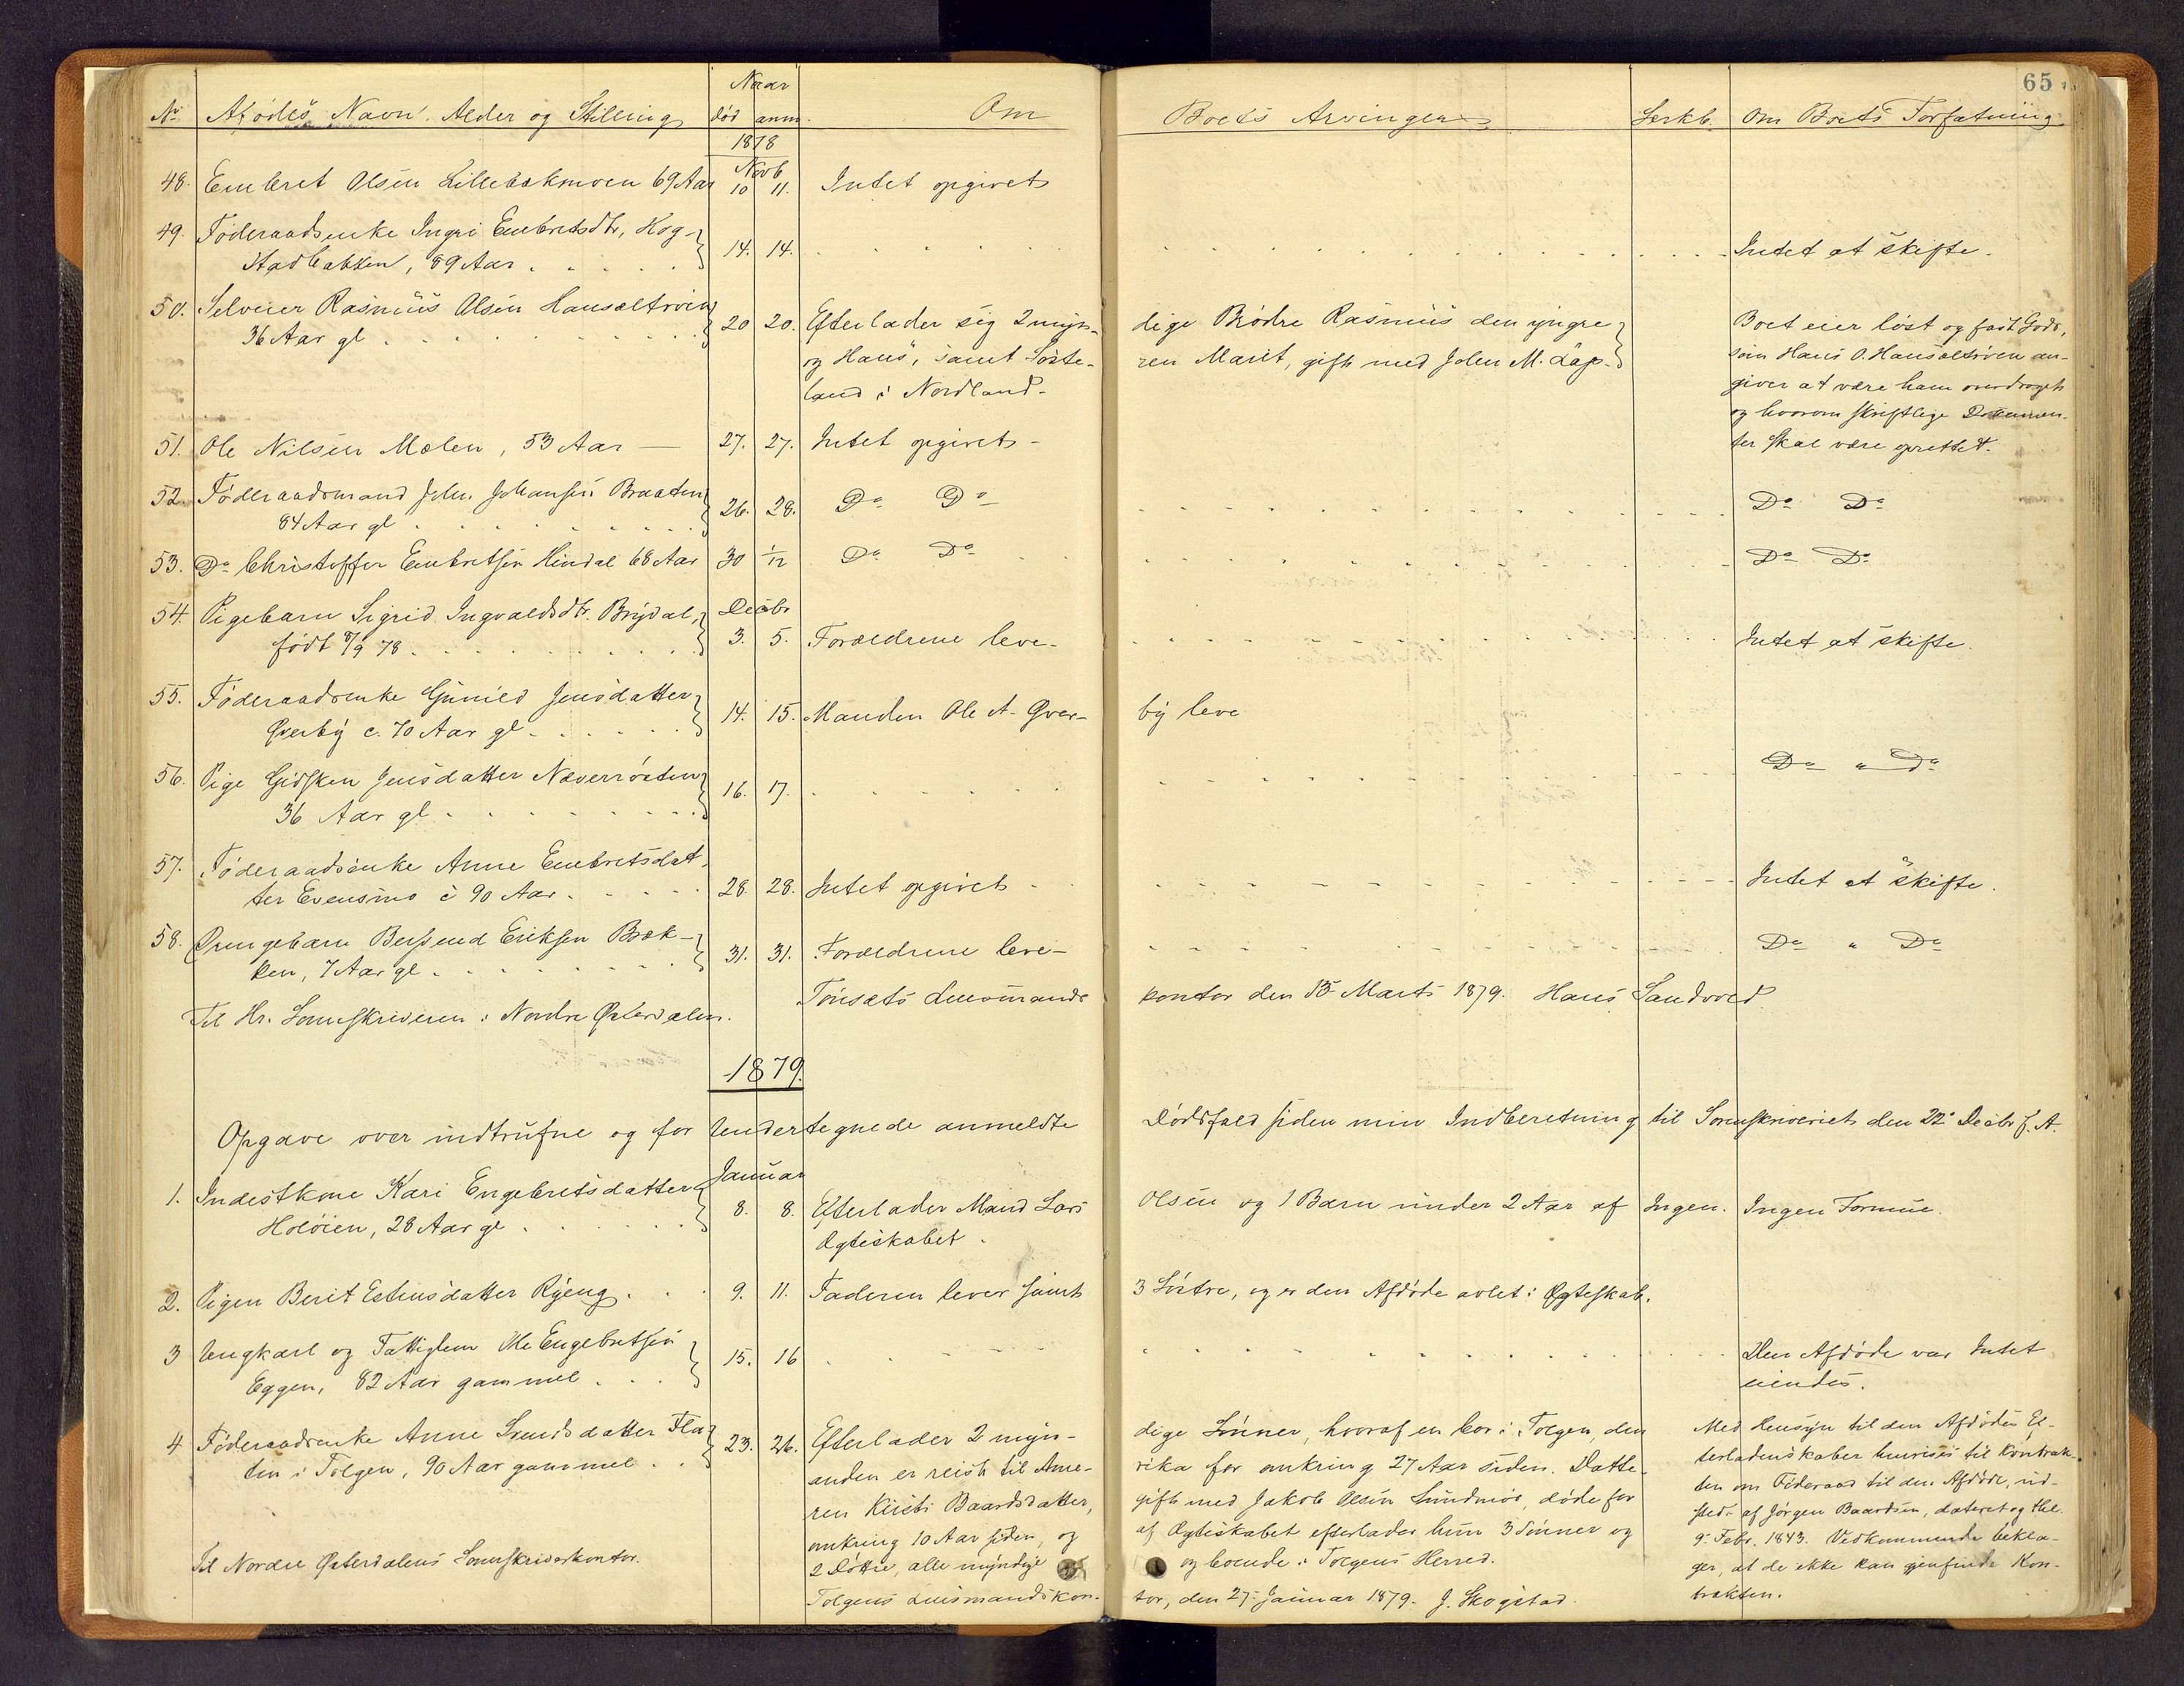 65
Naar
No Afdødes Navn, Alder og Stilling død anm. Om Boets Arvinger Serkb. Om Boets Forfatning
1878
Novb
48. Embret Olsen Lillebækmoen 69 Aar 10 11. Intet opgivet
49. Føderaadsenke Ingri Embretsdtr, Hog-
stadbakken, 89 Aar 14. 14. Intet at skifte.
50. Selveier Rasmus Olsen Hansæltrøen
36 Aar gl 20 20. Efterlader sig 2 myn- dige Brødre Rasmus den yngre Boet eier løst og fast Gods,
og Hans, samt Søste- ren Marit, gift med John M. Lap- som Hans O. Hansæltrøen an-
land i Nordland. giver at være ham overdraget
og hvorom skriftlige Documen-
51. Ole Nilsen Mælen, 53 Aar 27. 27. Intet opgivet - ter skal være oprettet.
52. Føderaadsmand John Johansen Braaten
84 Aar gl 26. 28. Do Do Do Do
53. Do Christoffer Embretsen Hindal 68 Aar 30 1/12 Do Do Do Do
54. Pigebarn Sigrid Ingvaldsdtr. Brydal, Decbr
født 8/9 78. 3. 5. Forældrene leve. Intet at skifte.
55. Føderaadsenke Gunild Jensdatter
Qverby c. 70 Aar gl. 14. 15. Manden Ole A. Qver- by leve
56. Pige Gidsken Jensdatter Næverrøsten Do " Do
36 Aar gl 16. 17.
57. Føderaadsenke Anne Embretsdat-
ter Evensmo c 90 Aar. 28. 28. Intet opgivet Intet at skifte.
58. Drengebarn Bersvend Eriksen Bæk-
ken, 7 Aar gl. 31. 31. Forældrene leve- Do " Do
Tønsets Lensmands kontor den 15 Marts 1879. Hans Sandvold
Til Hr. Sorenskriveren i Nordre Østerdalen.
1879.
Opgave over indtrufne og for Undertegnede anmeldte Dødsfald siden min Indberetning til Sorenskriveriet den 22de Decbr f. A.
Januar
1. Inderstkone Kari Engebretsdatter
Holøien, 28 Aar gl 8. 8. Efterlader Mand Lars Olsen og 1 Barn under 2 Aar af Ingen. Ingen Formue.
Ægteskabet.
2. Pigen Berit Estensdatter Ryeng 9. 11. Faderen lever samt 3 Søstre, og er den Afdøde avlet i Ægteskab.
3 Ungkarl og Fattiglem Ole Engebretsen
Eggen, 82 Aar gammel 15. 16 Den Afdøde var Intet
eiendes.
4 Føderaadsenke Anne Svendsdatter Fla-
ten i Tolgen, 90 Aar gammel 23. 26. Efterlader 2 myn- dige Sønner, hvoraf en bor i Tolgen, den Med Hensyn til den Afdødes Ef-
anden er reist til Ame- rika for omkring 27 Aar siden. Datte- terladenskaber henvises til Kontrak-
ren Kirsti Baardsdatter, gift med Jakob Olsen Sundmoe, døde for ten om Føderaad til den Afdøde, ud-
omkring 10 Aar siden, og af Ægteskabet efterlader hun 3 Sønner og sted af Jørgen Baardsen, dateret og thl.
2 Døttre, alle myndige og boende i Tolgens Herred. 9. Febr. 1843. Vedkommende bekla-
ger, at de ikke kan gjenfinde Kon-
trakten.
Til Nordre Østerdalens Sorenskriverkontor.
Tolgens Lensmandskon- tor, den 27. Januar 1879. J. Skogstad.